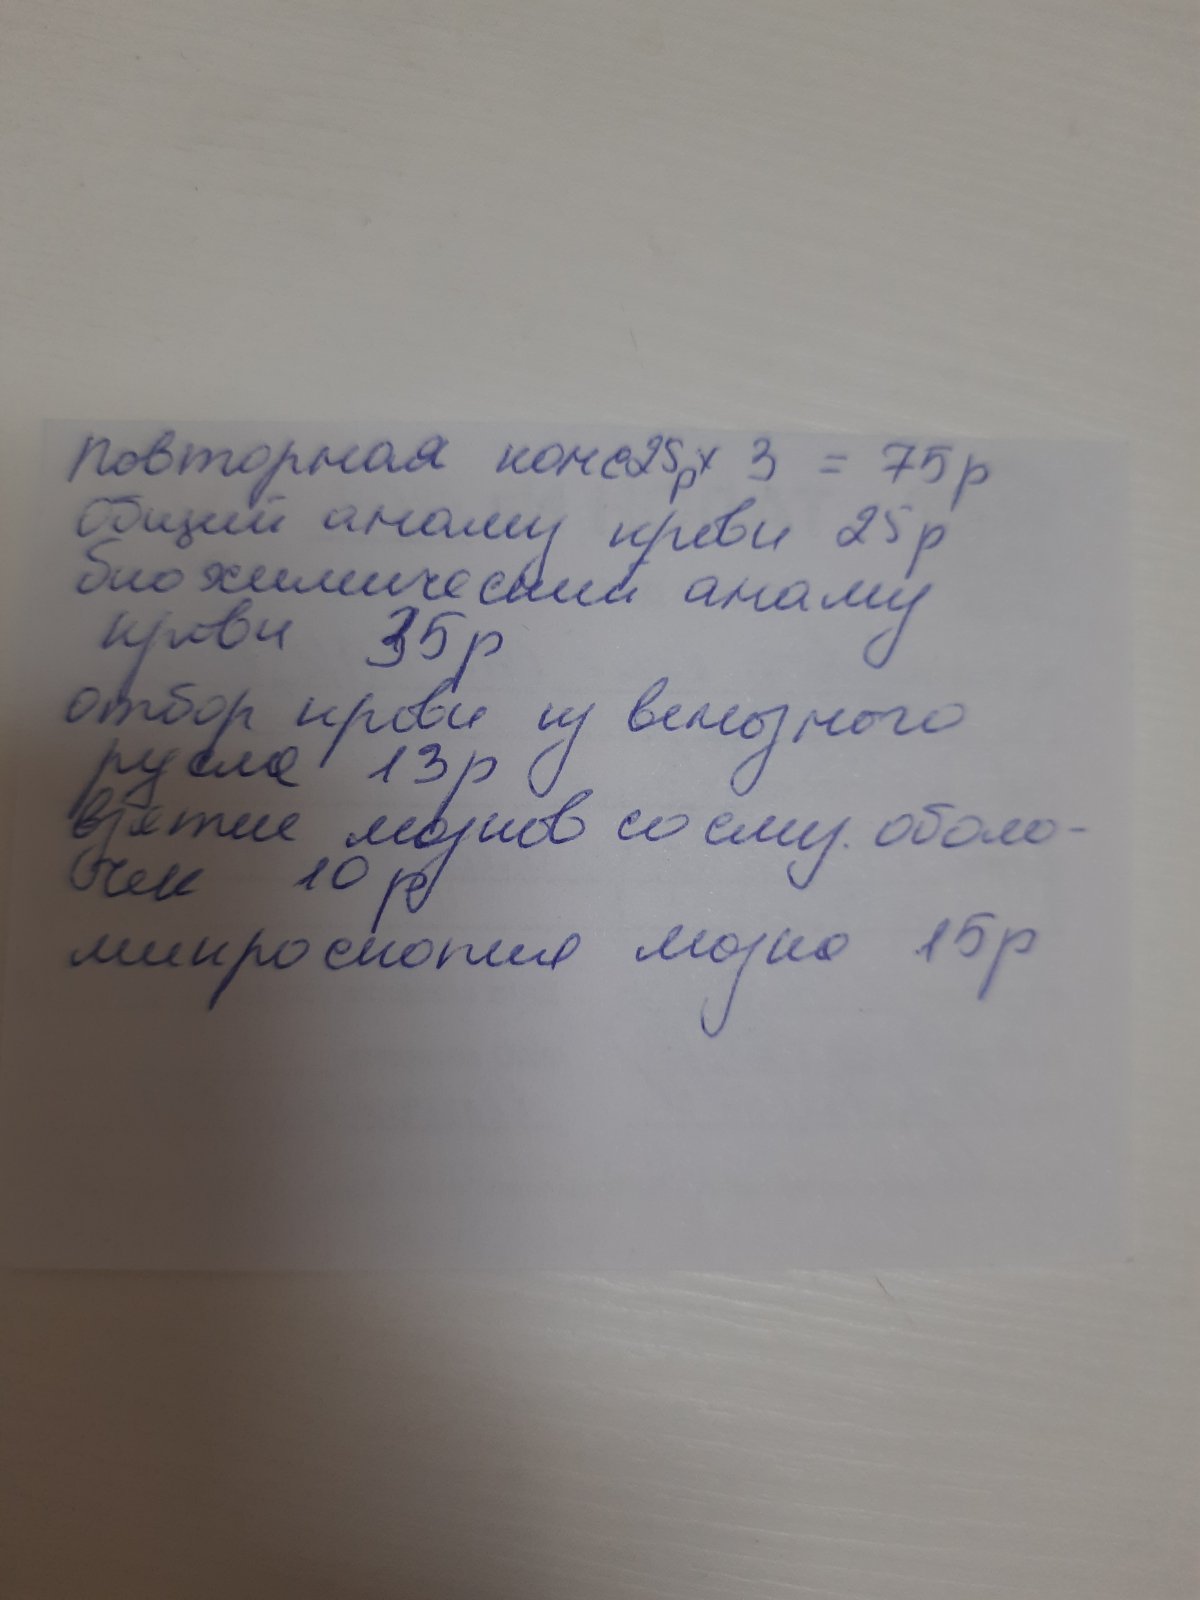 Повторная конс 25р х 3 = 75р
Общий анализ крови 25р
биохимический анализ
крови 35р
отбор крови из венозного
русла 13р
взятие мазков со слиз. оболо-
чек 10р
микроскопия мазка 15р